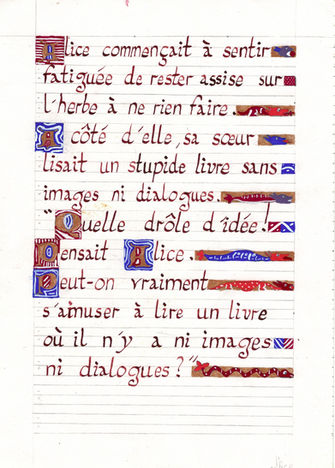 Alice commençait à sentir
fatiguée de rester assise sur
l'herbe à ne rien faire.
A côté d'elle, sa sœur
lisait un stupide livre sans
images ni dialogues.
"Quelle drôle d'idée!
Pensait Alice.
Peut-on vraiment
s'amuser à lire un livre
où il n'y a ni images
ni dialogues?"